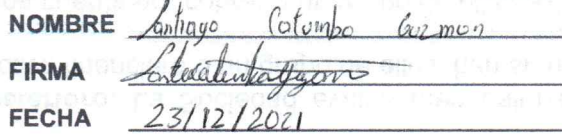 NOMBRE Santiago Catumbo Guzmon
FIRMA
FECHA 23/12/2021